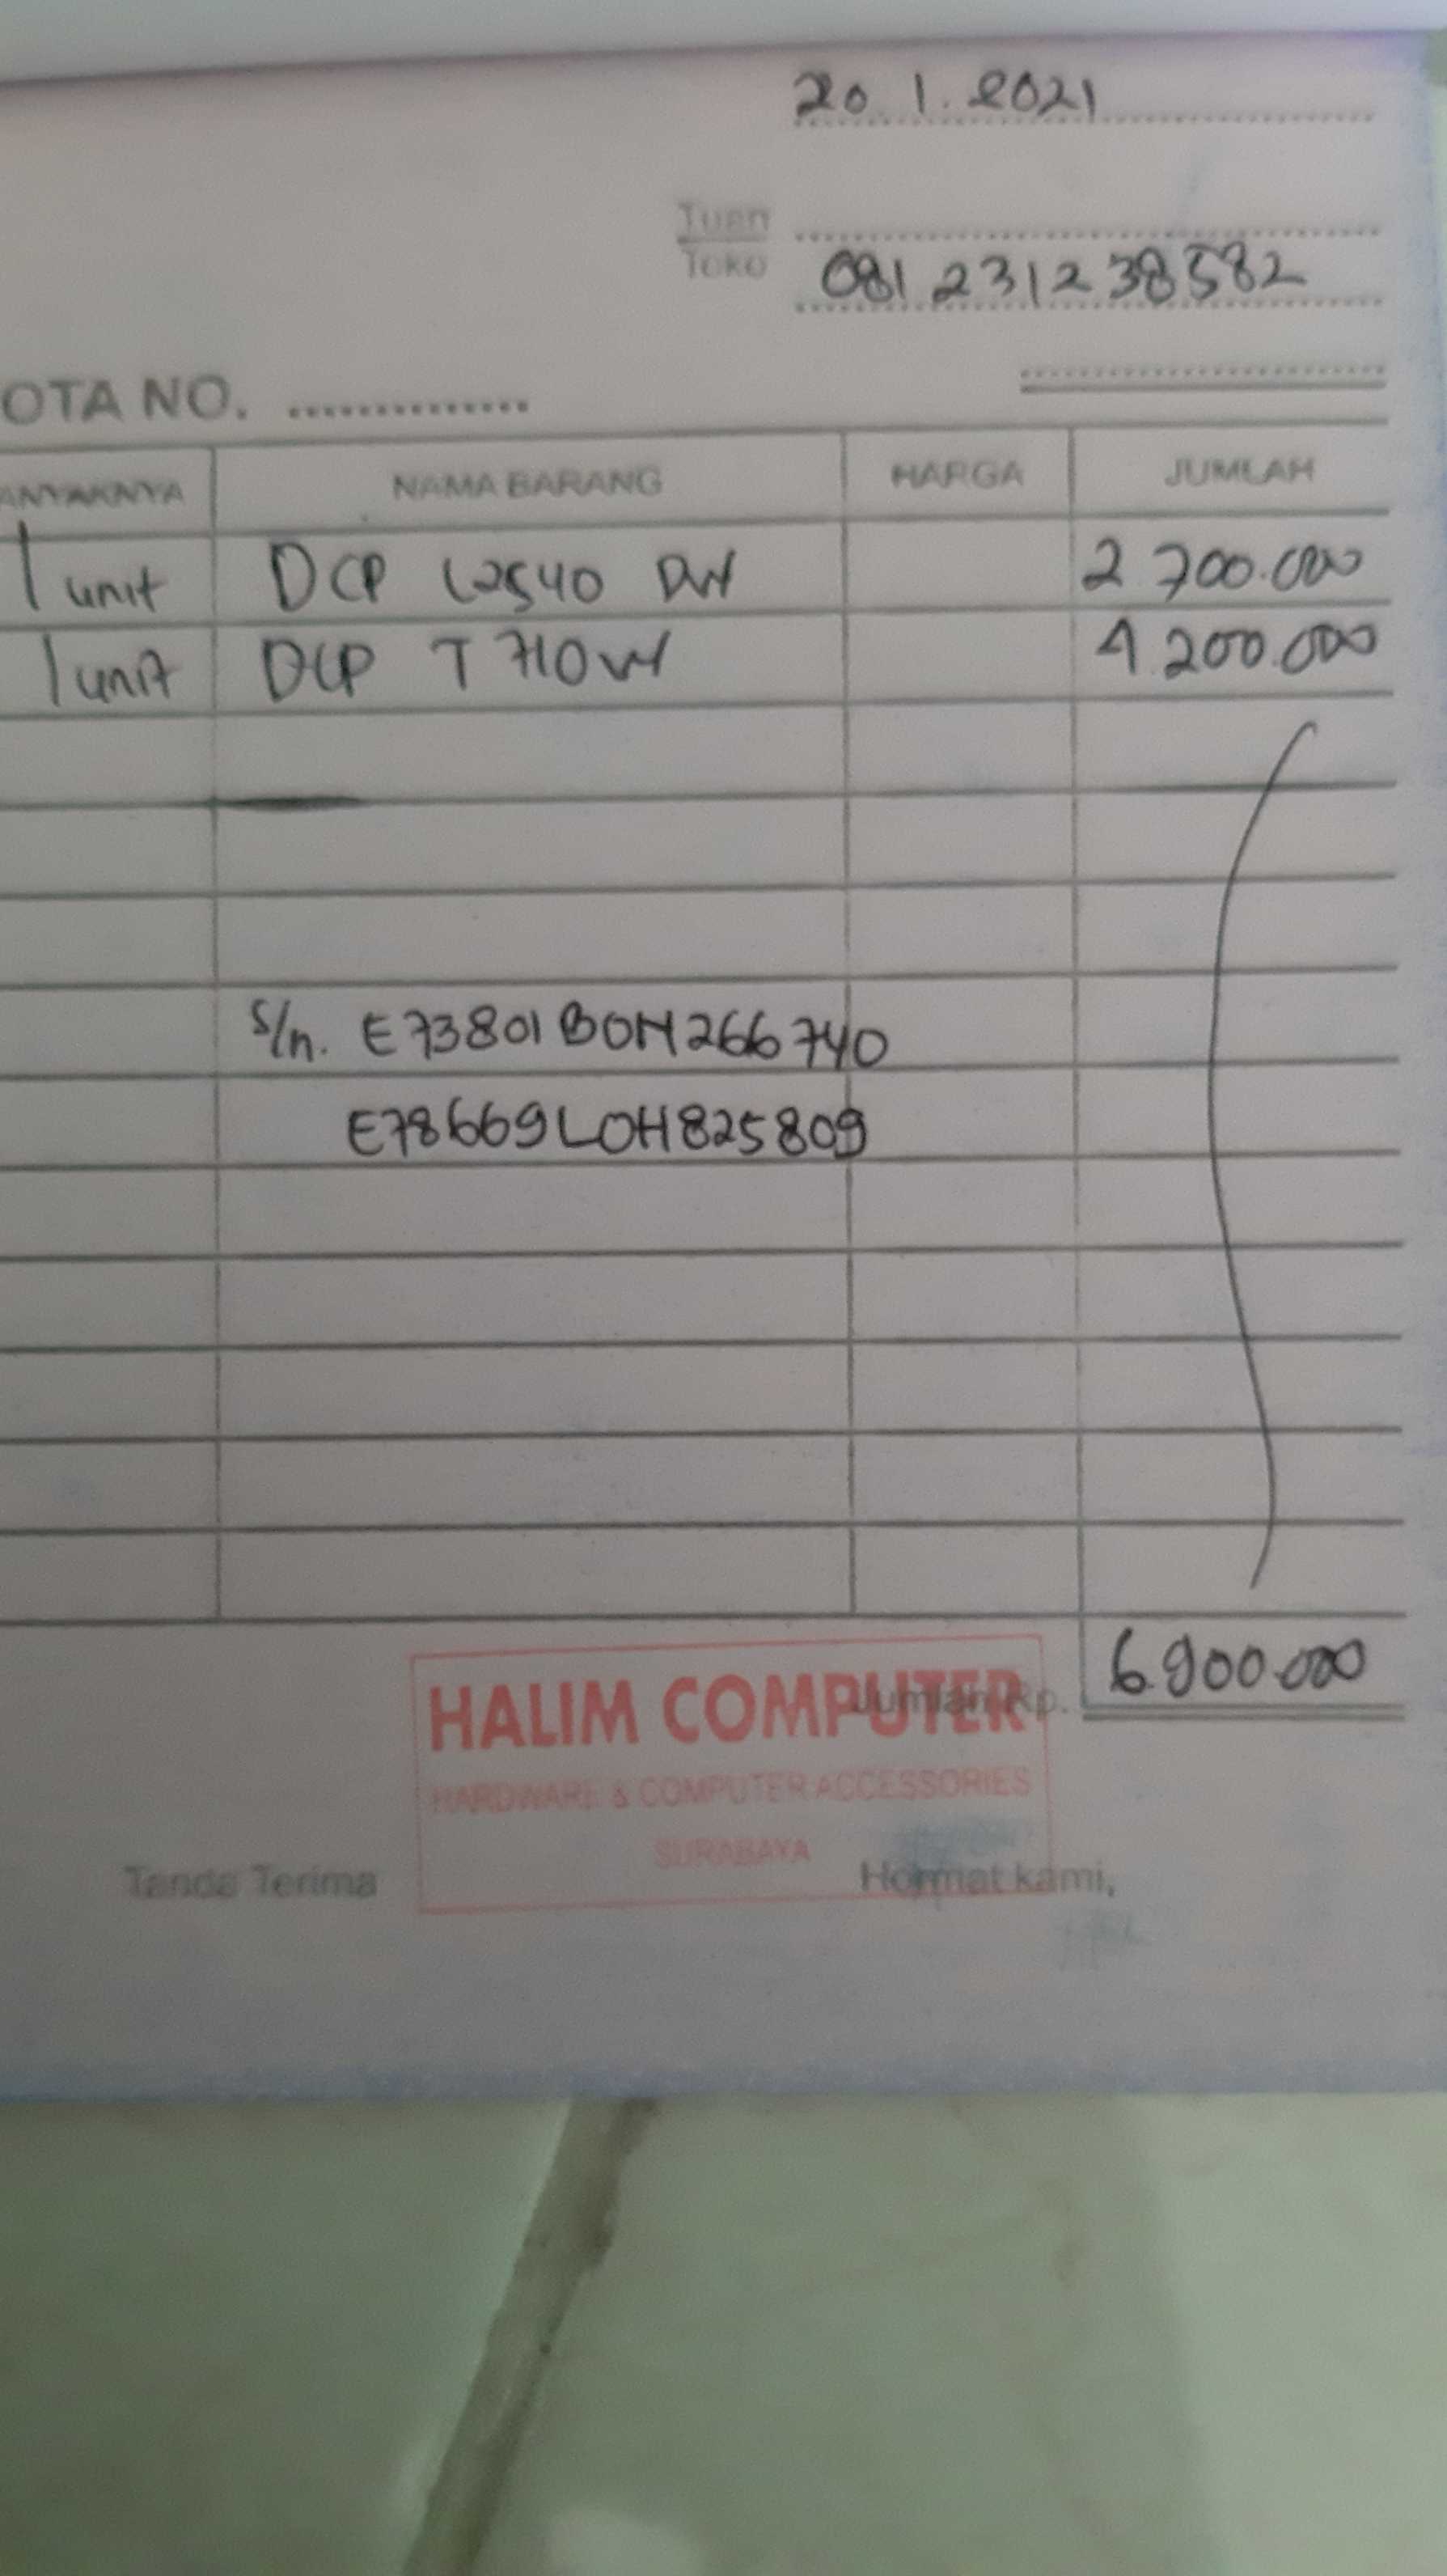 20.1.2021
Tuan
Toko
081 231238582
OTA NO. ..............
ANYAKNYA NAMA BARANG HARGA JUMLAH
1 unit DCP L2540 DW 2.700.000
1 unit DCP T 710W 4.200.000
S/n. E73801B0H266740
E78669L0H825809
Jumlah Rp. 6.900.000
HALIM COMPUTER
HARDWARE & COMPUTER ACCESSORIES
SURABAYA
Tanda Terima Hormat kami,